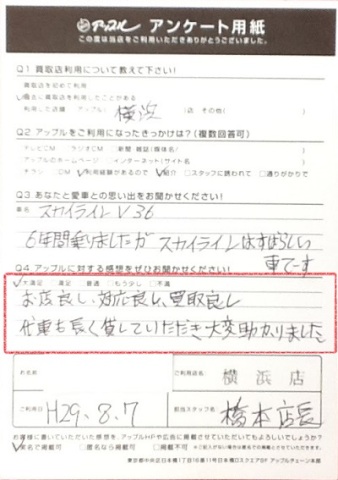 アップル アンケート用紙
この度は当店をご利用いただきありがとうございました。
Q1 買取店利用について教えて下さい!
買取店を初めて利用
過去に買取店を利用したことがある
利用した店舗 アップル( 横浜 )店 その他( )
Q2 アップルをご利用になったきっかけは?(複数回答可)
テレビCM ラジオCM 新聞 雑誌(媒体名/ )
アップルのホームページ インターネット(サイト名 )
チラシ CM 利用経験があるので 紹介 スタッフに誘われて 通りがかりで
Q3 あなたと愛車との思い出をお聞かせください!
車名 スカイライン V36
6年間乗りましたが スカイラインはすばらしい
車です
Q4 アップルに対する感想をぜひお聞かせください!
大満足 満足 普通 もう少し 不満
お店良し、対応良し、買取良し
代車も長く貸していただき大変助かりました
お名前 ご利用店名 横浜店
ご利用日 H29.8.7 担当スタッフ名 橋本店長
お書きに書いていただいた感想を アップルHPや広告に掲載させていただいてもよろしいでしょうか?
実名で掲載可 匿名なら掲載可 掲載不可